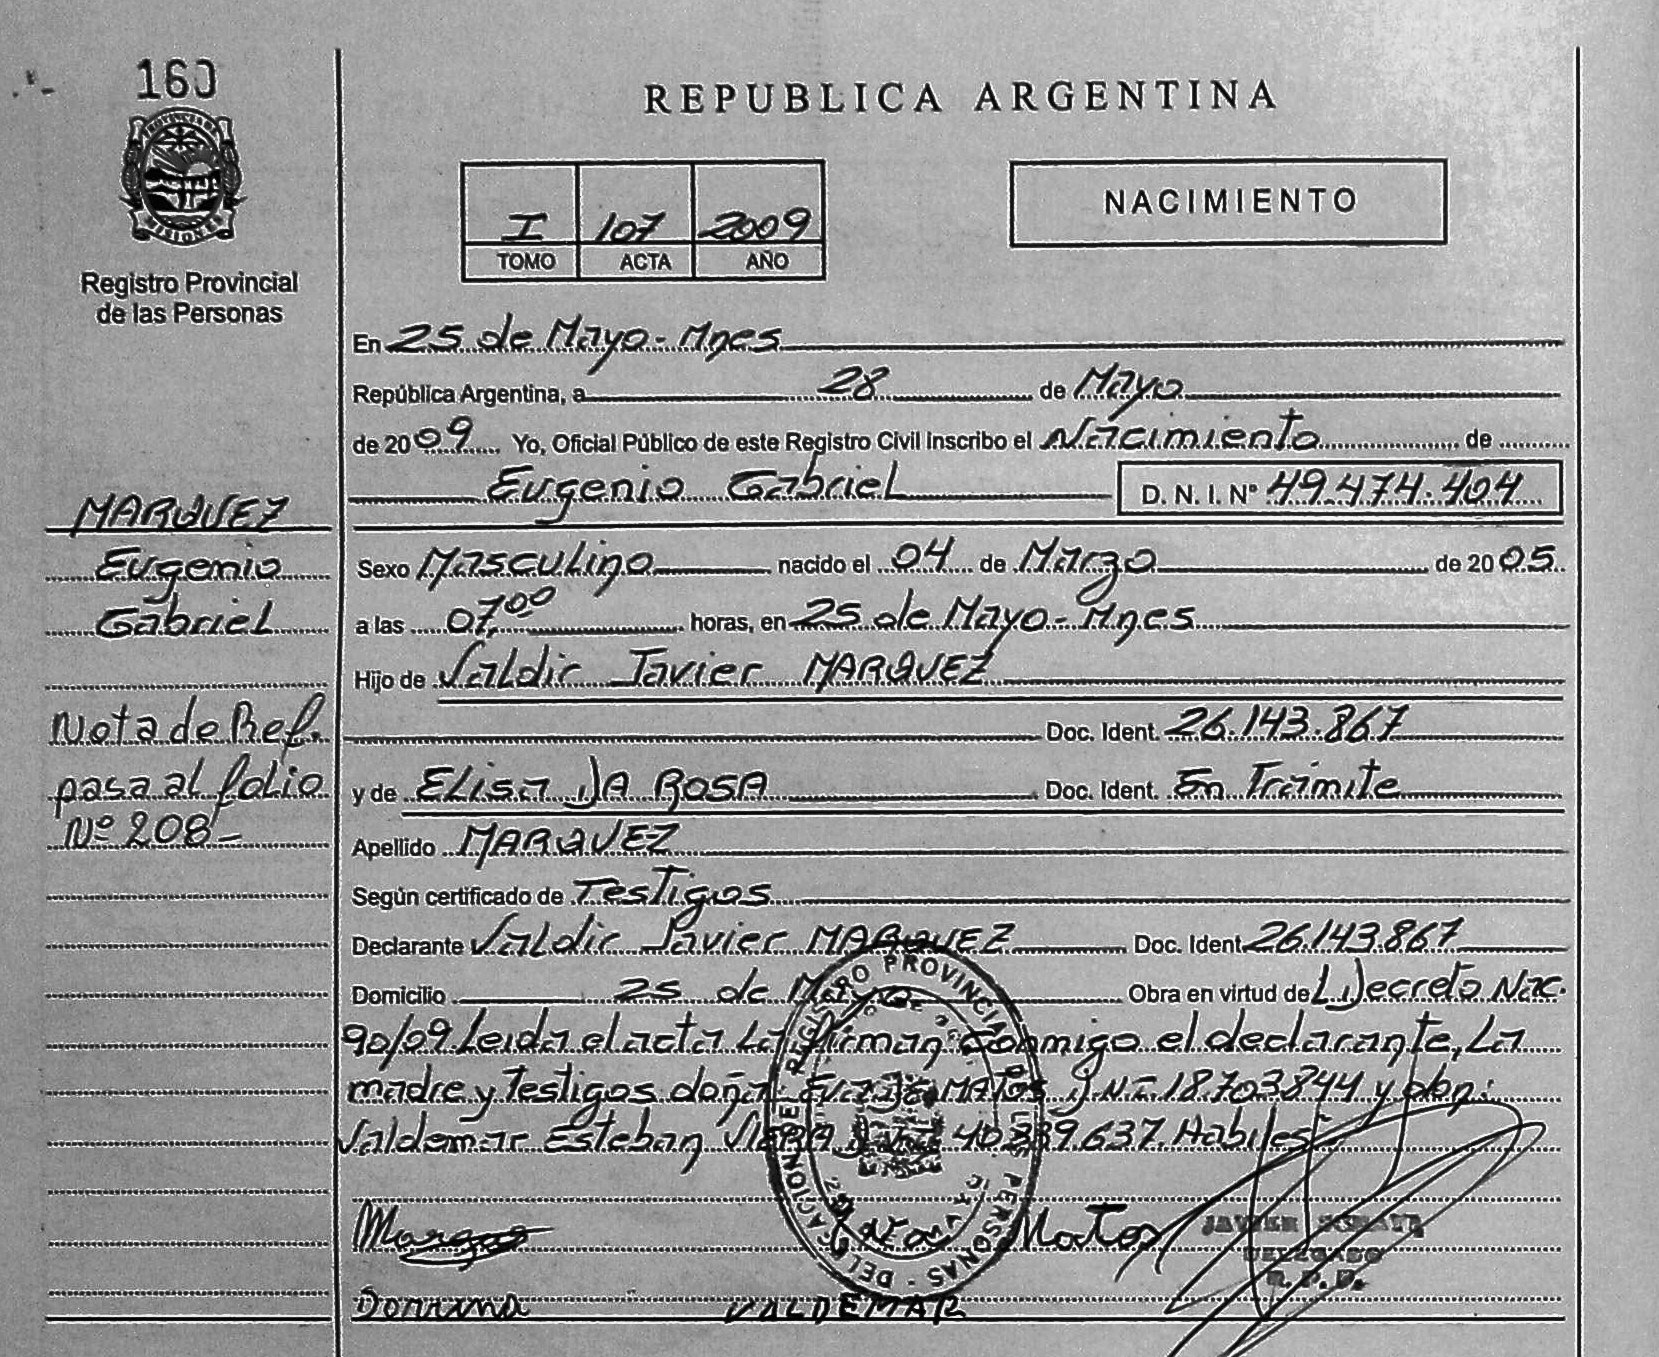 160
REPUBLICA ARGENTINA
PROVINCIA DE
MISIONES
Registro Provincial
de las Personas
I 107 2009
TOMO ACTA AÑO
NACIMIENTO
En 25 de Mayo - Mnes
República Argentina, a 28 de Mayo
de 2009 Yo, Oficial Público de este Registro Civil Inscribo el Nacimiento de
Eugenio Gabriel D. N. I. Nº 49.474.404
Sexo Masculino nacido el 04 de Marzo de 2005
a las 07,00 horas, en 25 de Mayo - Mnes
Hijo de Valdir Javier MARQUEZ
Doc. Ident. 26.143.867
y de Elisa DA ROSA Doc. Ident. En Trámite
Apellido MARQUEZ
Según certificado de Testigos
Declarante Valdir Javier MARQUEZ Doc. Ident. 26.143.867
Domicilio 25 de Mayo Obra en virtud de L Decreto Nac.
90/09. Leida el acta La firman conmigo el declarante, La
madre y Testigos doña: MATOS D.N.I. 18.703.844 y don:
Valdemar Esteban VIERA 637. Habiles
MARQUEZ
Eugenio
Gabriel
Nota de Ref.
pasa al folio
Nº 208-
REGISTRO PROVINCIAL DE LAS PERSONAS - DELEGACION
Matos
JAVIER
DELEGADO
R. P. P.
VALDEMAR